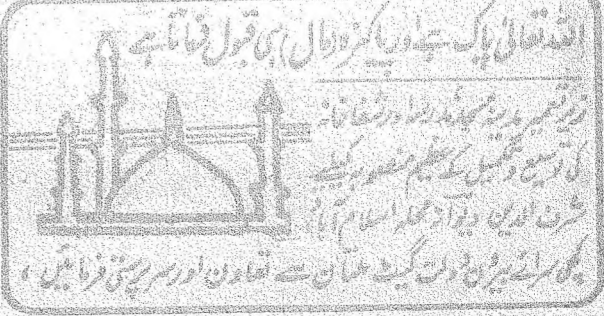 اللہ تعالیٰ پاک ہے اور پاکیزہ مال ہی قبول فرماتا ہے
زیر تعمیر مدینہ مسجد و مدرسہ اور شفاخانہ
کی توسیع و تکمیل کے عظیم منصوبہ کیلئے
شرف الدین محلہ اسلام آباد
پکی سرائے بیرون دولت گیٹ ملتان سے تعاون اور سرپرستی فرمائیں ،